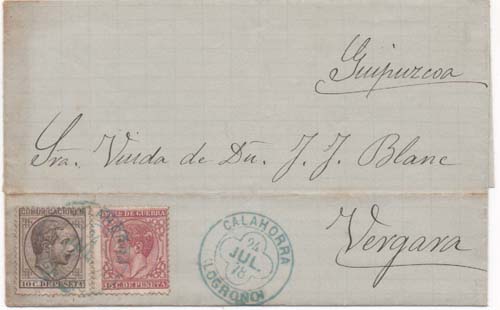 Guipuzcoa
Sra. Viuda de Dn. J. J. Blanc
Vergara
COMUNICACIONES
10 C. DE PESETA
DE GUERRA
15 C. DE PESETA
CALAHORRA
24
JUL.
78
(LOGROÑO)